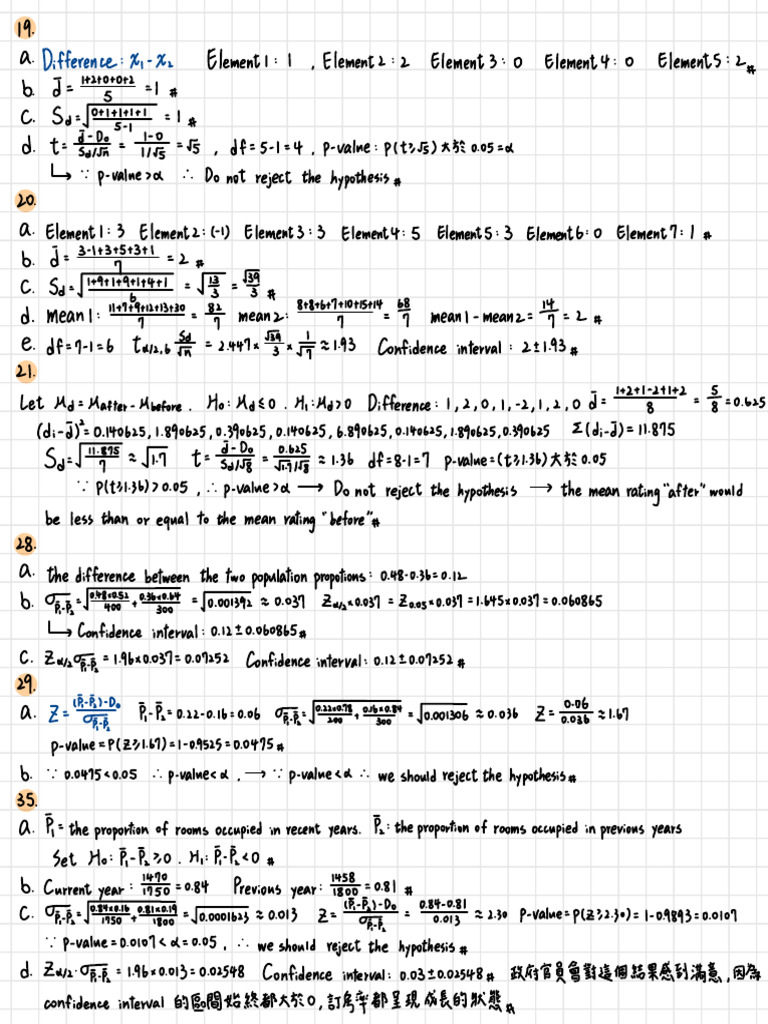 19.
a. Difference: x₁-x₂ Element 1: 1 , Element 2: 2 Element 3: 0 Element 4: 0 Element 5: 2 #
b. d̄ = (1+2+0+0+2)/5 = 1 #
c. Sd = √((0+1+1+1+1)/(5-1)) = 1 #
d. t = (d̄-D₀)/(Sd/√n) = (1-0)/(1/√5) = √5 , df = 5-1 = 4 , p-value: P(t≥√5) 大於 0.05 = α
↳ ∵ p-value > α ∴ Do not reject the hypothesis #
20.
a. Element 1: 3 Element 2: (-1) Element 3: 3 Element 4: 5 Element 5: 3 Element 6: 0 Element 7: 1 #
b. d̄ = (3-1+3+5+3+1)/7 = 2 #
c. Sd = √((1+9+1+9+1+4+1)/6) = √(13/3) = √39/3 #
d. mean 1: (11+7+9+12+13+30)/7 = 82/7 mean 2: (8+8+6+7+10+15+14)/7 = 68/7 mean 1 - mean 2 = 14/7 = 2 #
e. df = 7-1 = 6 tα/2,6 Sd/√n = 2.447 × √39/3 × 1/√7 ≈ 1.93 Confidence interval : 2 ± 1.93 #
21.
Let μd = μafter - μbefore . H₀: μd ≤ 0 . H₁: μd > 0 Difference: 1, 2, 0, 1, -2, 1, 2, 0 d̄ = (1+2+1-2+1+2)/8 = 5/8 = 0.625
(di-d̄)² = 0.140625, 1.890625, 0.390625, 0.140625, 6.890625, 0.140625, 1.890625, 0.390625 Σ(di-d̄) = 11.875
Sd = √(11.875/7) ≈ √1.7 t = (d̄-D₀)/(Sd/√8) = 0.625/(√1.7/√8) ≈ 1.36 df = 8-1 = 7 p-value = (t≥1.36) 大於 0.05
∵ P(t≥1.36) > 0.05 , ∴ p-value > α ⟶ Do not reject the hypothesis ⟶ the mean rating "after" would
be less than or equal to the mean rating "before" #
28.
a. the difference between the two population propotions : 0.48-0.36 = 0.12
b. σp̄₁-p̄₂ = √(0.48×0.52/400 + 0.36×0.64/300) = √0.001392 ≈ 0.037 Zα/2 × 0.037 = Z0.05 × 0.037 = 1.645 × 0.037 = 0.060865
↳ Confidence interval : 0.12 ± 0.060865 #
c. Zα/2 σp̄₁-p̄₂ = 1.96 × 0.037 = 0.07252 Confidence interval: 0.12 ± 0.07252 #
29.
a. Z = ((p̄₁-p̄₂)-D₀)/σp̄₁-p̄₂ p̄₁-p̄₂ = 0.22-0.16 = 0.06 σp̄₁-p̄₂ = √(0.22×0.78/200 + 0.16×0.84/300) = √0.001306 ≈ 0.036 Z = 0.06/0.036 ≈ 1.67
p-value = P(Z≥1.67) = 1-0.9525 = 0.0475 #
b. ∵ 0.0475 < 0.05 ∴ p-value < α , ⟶ ∵ p-value < α ∴ we should reject the hypothesis #
35.
a. P̄₁ = the proportion of rooms occupied in recent years. P̄₂ : the proportion of rooms occupied in previous years
Set H₀: P̄₁-P̄₂ ≥ 0 . H₁: P̄₁-P̄₂ < 0 #
b. Current year : 1470/1750 = 0.84 Previous year : 1458/1800 = 0.81 #
c. σp̄₁-p̄₂ = √(0.84×0.16/1750 + 0.81×0.19/1800) = √0.0001623 ≈ 0.013 Z = ((p̄₁-p̄₂)-D₀)/σp̄₁-p̄₂ = (0.84-0.81)/0.013 ≈ 2.30 P-value = P(Z≥2.30) = 1-0.9893 = 0.0107
∵ p-value = 0.0107 < α = 0.05 , ∴ we should reject the hypothesis #
d. Zα/2 · σp̄₁-p̄₂ = 1.96 × 0.013 = 0.02548 Confidence interval: 0.03 ± 0.02548 # 政府官員會對這個結果感到滿意,因為
confidence interval 的區間始終都大於 0,訂房率都呈現成長的狀態 #